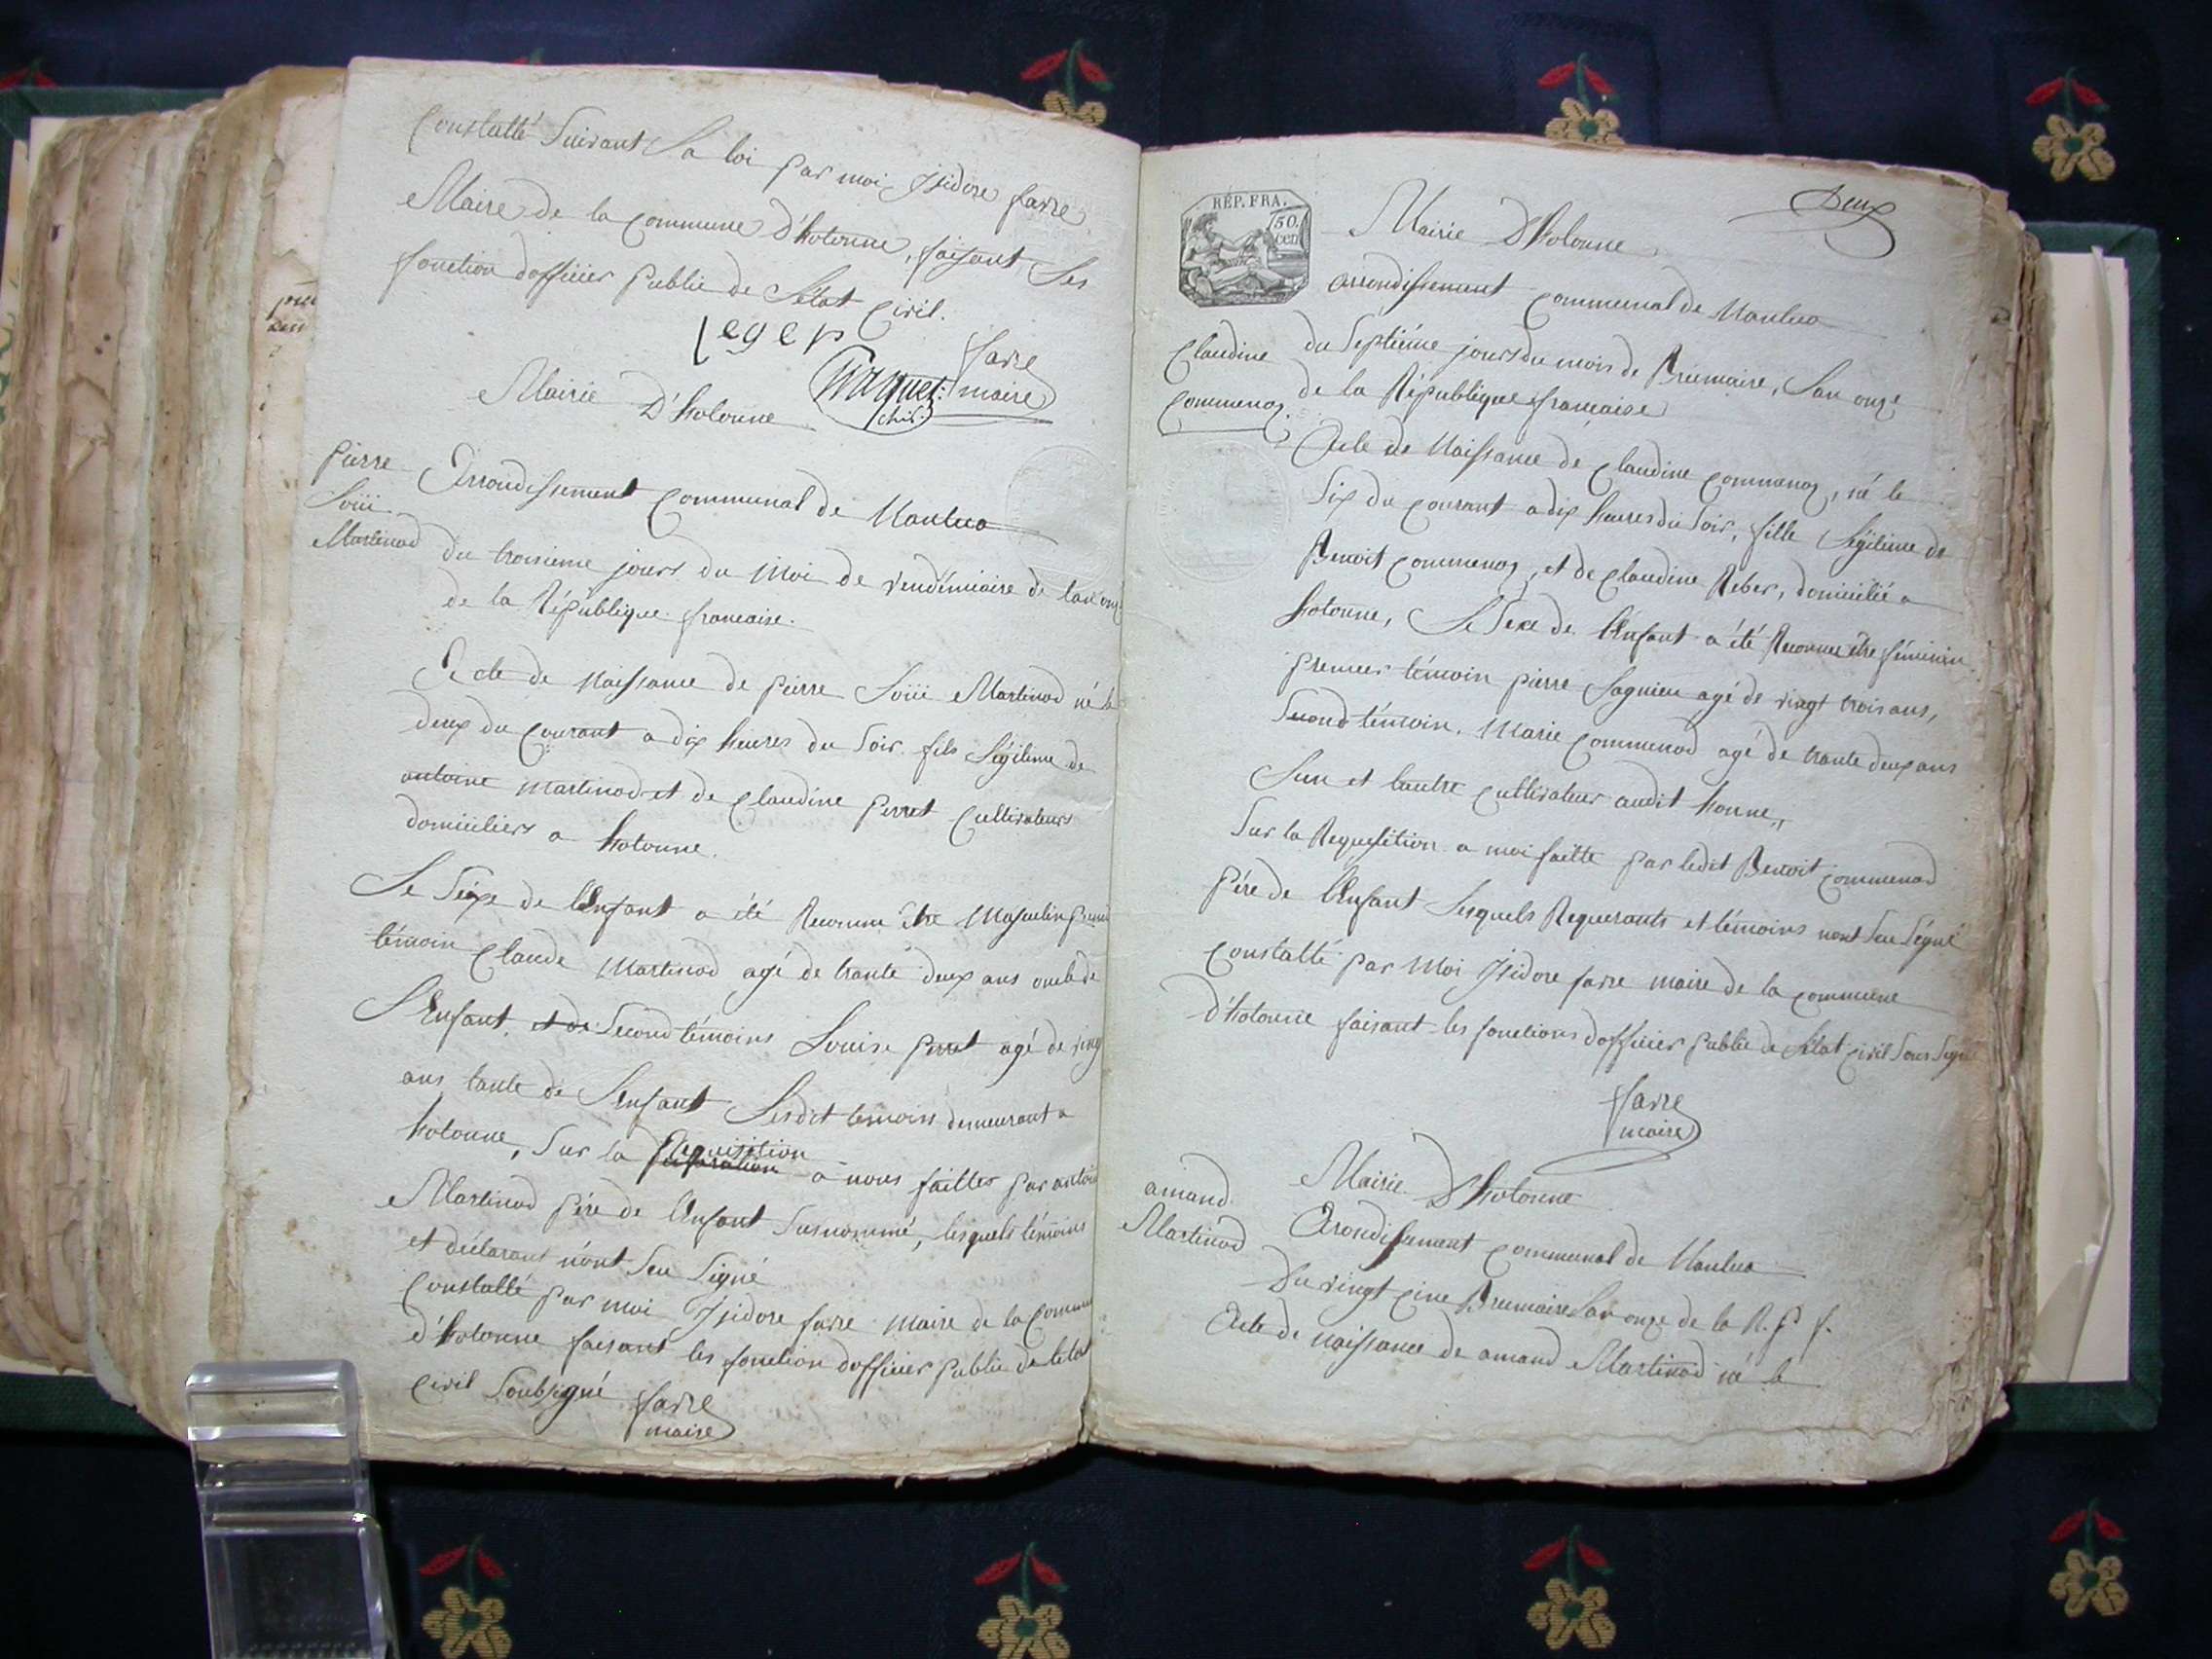 Constatté Suivant La loi par moi Isidore favre
Maire de la Commune d'hotonne, faisant Les
fonction dofficier Public de L'état Civil.
favre
maire
Mairie D'hotonne
Pierre
Loüi
Martinod
Arrondissement Communal de Nantua
du troisieme jours du Moi de vendémiaire de lan onz
de la République francaise.
Acte de Naissance de pierre Loüi Martinod né le
deux du Courant a dix heures du Soir fils Légitime de
antoine Martinod et de Claudine perret Cultivateurs
domiciliers a hotonne.
Le Sexe de L'Enfant a été Reconnu être Masculin premi
témoin Claude Martinod agé de trante deux ans oncle de
L'Enfant. et de Second témoins Louise perret agé de ving
ans tante de L'enfant Lesdit témoins demeurant a
hotonne, Sur la Requisition
a nous faittes par antoin
Martinod Père de L'Enfant Susnommé, lesquels témoins
et déclarant n'ont Seu Signé
Constatté par moi Isidore favre Maire de la Commu
d'hotonne faisant les fonction dofficier Public de letat
Civil Soubsigné
favre
maire
Deux
RÉP. FRA.
50.
cen
Mairie D'hotonne
arrondissement Communal de Nantua
Claudine
Commenoz
du Septiéme jours du mois de Brumaire, Lan onze
de la République francaise
Acte de Naissance de Claudine Commenoz, né le
Six du Courant a dix heures du Soir, fille Légitime de
Benoit Commenoz, et de Claudine Reber, domicilié a
hotonne, Le Sexe de L'Enfant a été Reconnu être féminin
premier témoin pierre Sagnieu agé de vingt trois ans,
Second témoin. Marie Commenod agé de trante deux ans
L'un et lautre Cultivateur audit honne,
Sur la Requesition a moi faitte par ledit Benoit Commenod
Père de L'Enfant Lesquels Requerants et témoins nont Seu Signé
Constatté par Moi Isidore favre maire de la Commune
d'hotonne faisant les fonctions dofficier Public de L'état Civil Sous Signé
favre
maire
Mairie D'hotonne
amand
Martinod
Arondissement Communal de Nantua
Du vingt cinc Brumaire Lan onze de la R. P f.
Acte de naissance de amand Martinod né le